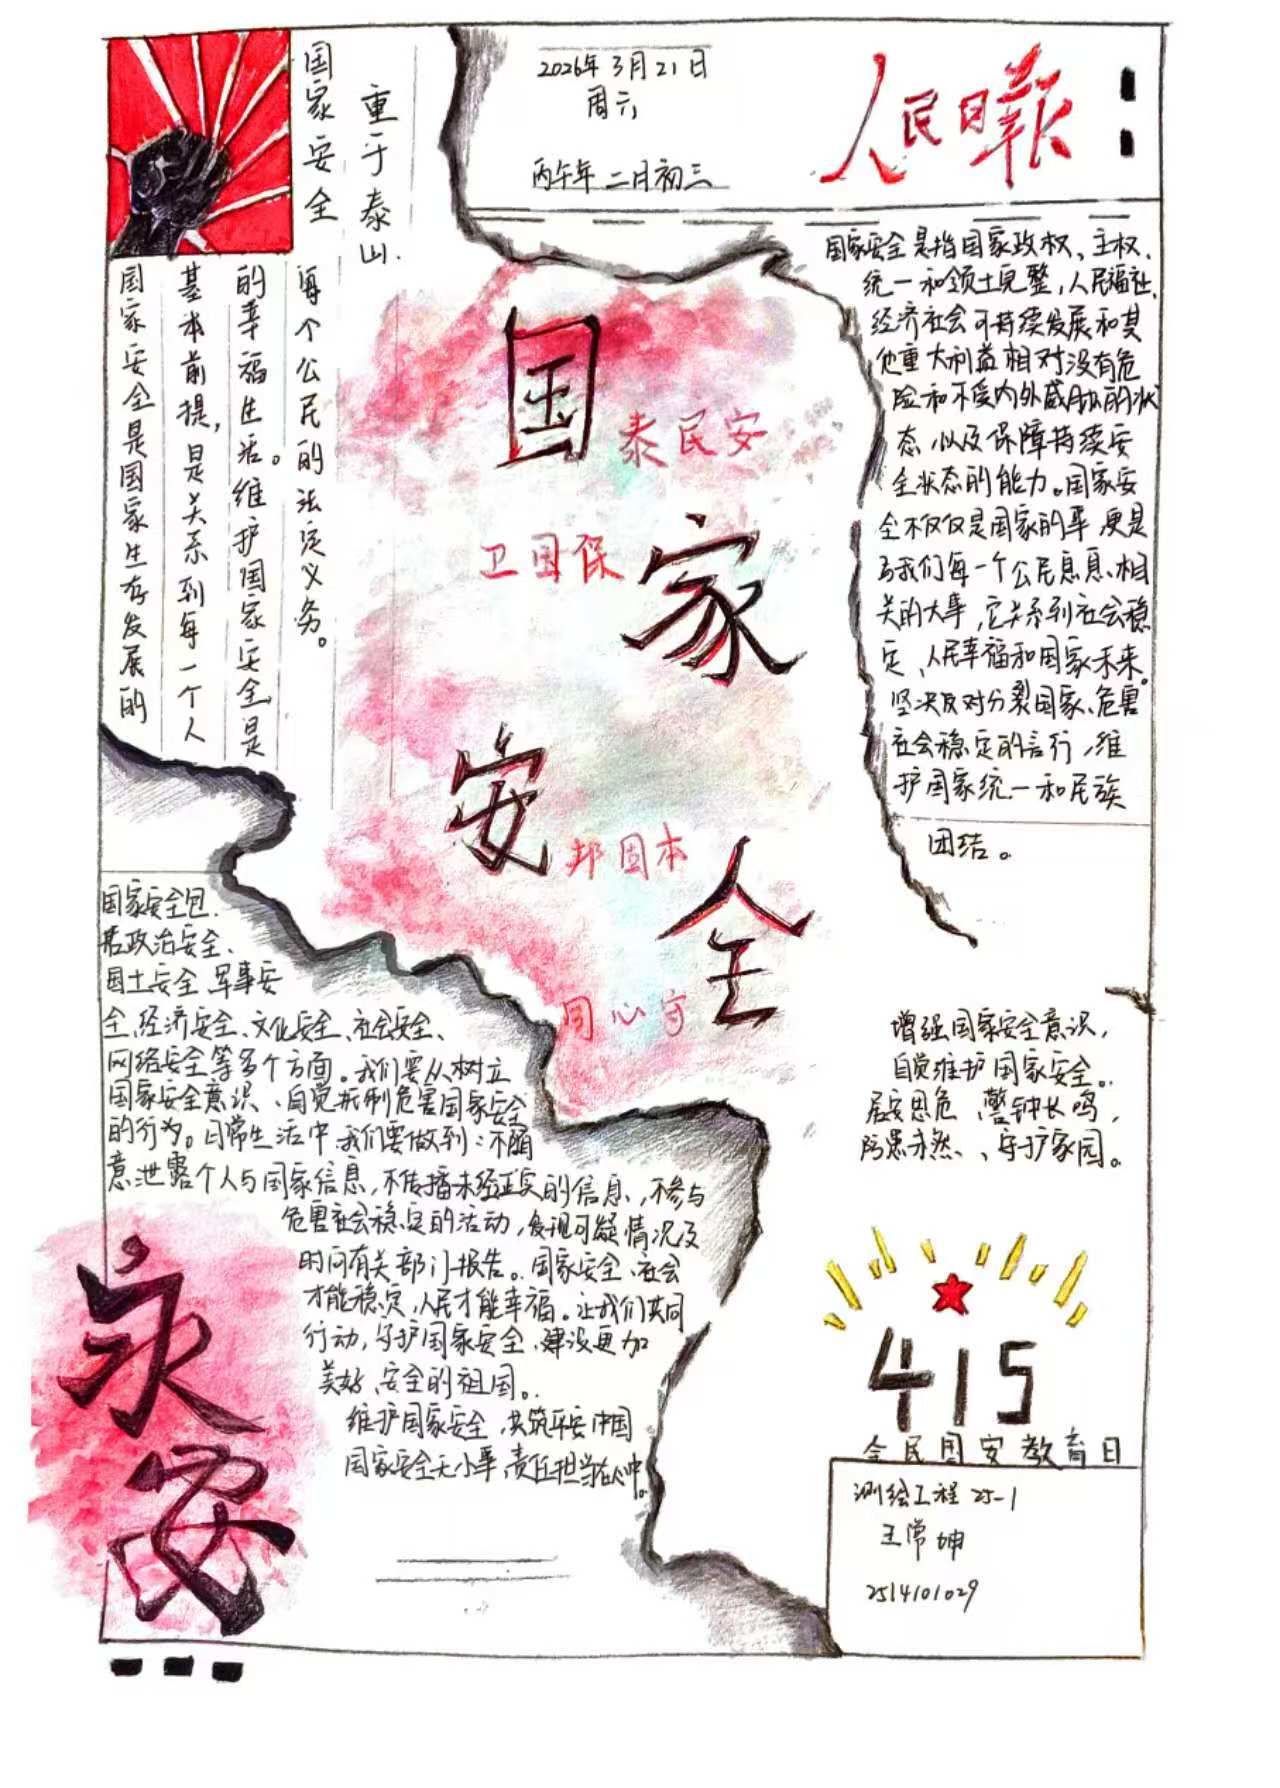 国家安全
重于泰山.
国家安全是国家生存发展的
基本前提，是关系到每一个人
的幸福生活。维护国家安全是
每个公民的法定义务。
2026年3月21日
周六
丙午年二月初三
人民日報
国泰民安
卫国保家
安邦固本
同心守全
国家安全是指国家政权、主权、
统一和领土完整，人民福祉、
经济社会可持续发展和其
他重大利益相对没有危
险和不受内外威胁的状
态，以及保障持续安
全状态的能力。国家安
全不仅仅是国家的事，更是
与我们每一个公民息息相
关的大事，它关系到社会稳
定、人民幸福和国家未来。
坚决反对分裂国家、危害
社会稳定的言行，维
护国家统一和民族
团结。
国家安全包
括政治安全、
国土安全、军事安
全、经济安全、文化安全、社会安全、
网络安全等多个方面。我们要从树立
国家安全意识、自觉抵制危害国家安全
的行为。日常生活中，我们要做到：不随
意泄露个人与国家信息，不传播未经证实的信息，不参与
危害社会稳定的活动，发现可疑情况及
时向有关部门报告。国家安全、社会
才能稳定，人民才能幸福。让我们共同
行动，守护国家安全、建设更加
美好、安全的祖国。
维护国家安全，共筑平安中国
国家安全无小事，责任担当在心中。
增强国家安全意识，
自觉维护国家安全。
居安思危、警钟长鸣，
防患未然、守护家园。
永安
415
全民国安教育日
测绘工程25-1
王常坤
2514101029